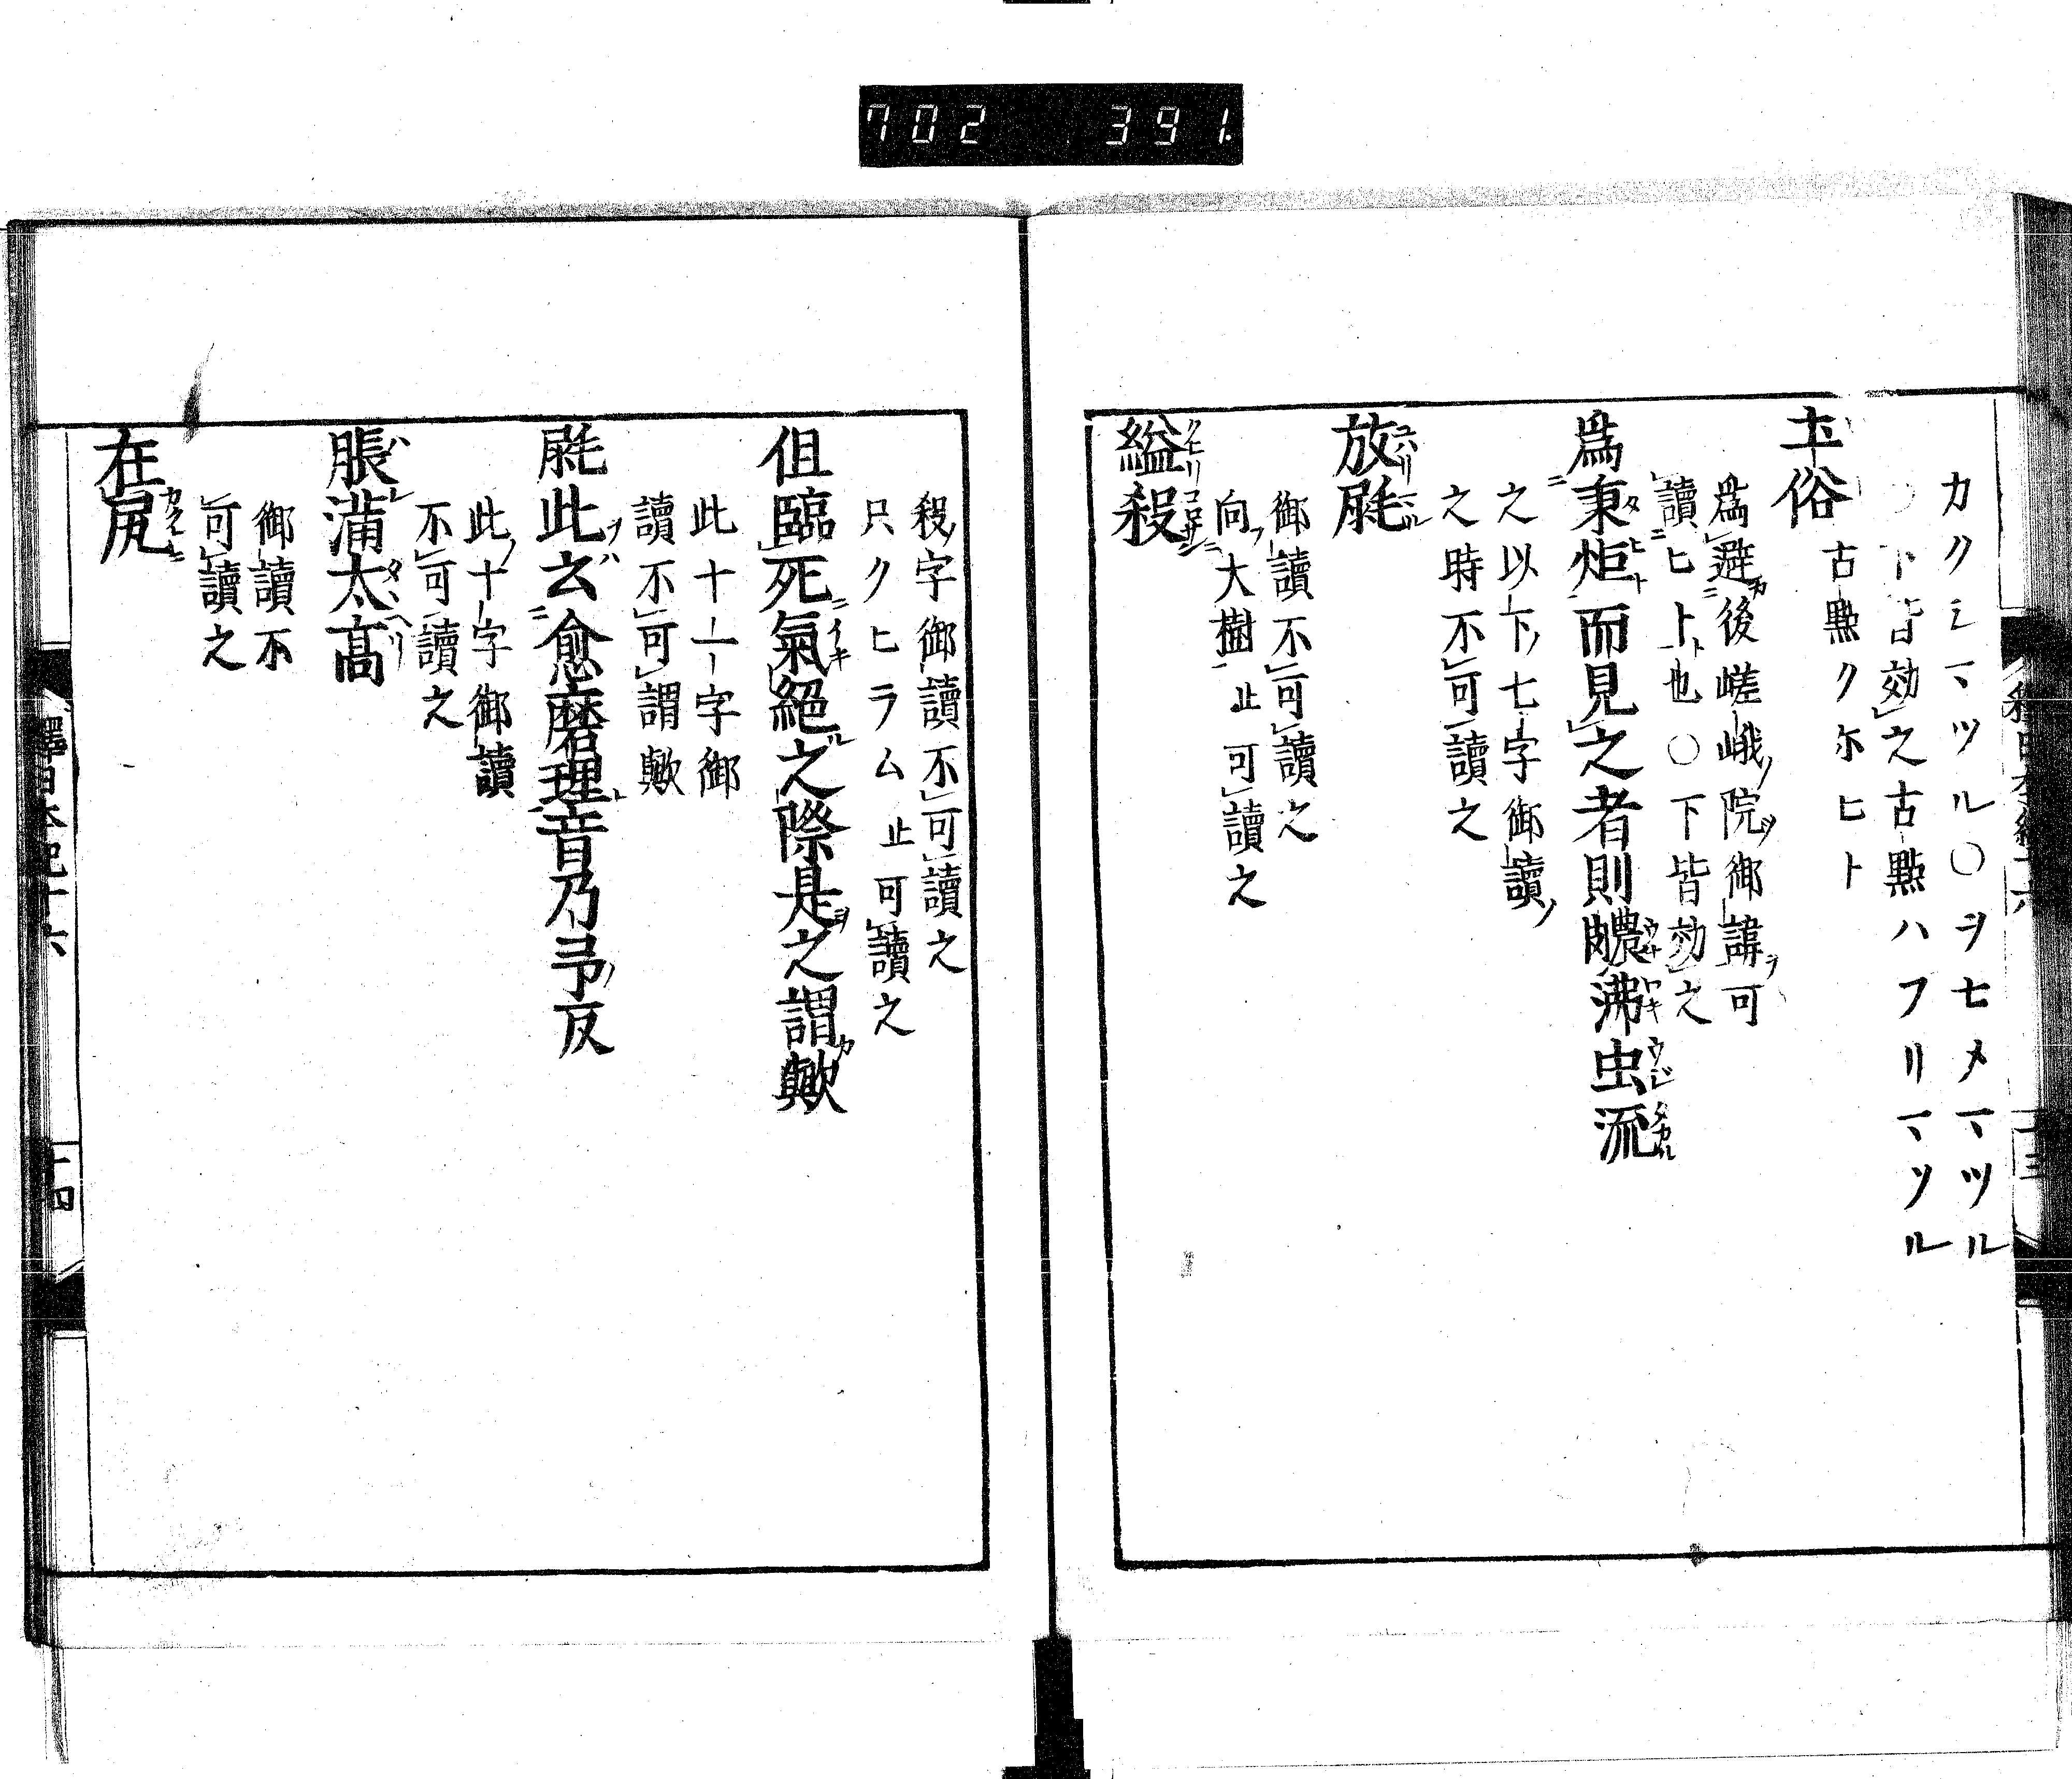 702 391
カクシマツル〇ヲセメマツル
〇下皆効之古點ハフリマツル
圡俗
古點クホヒト
爲避後嵯峨ノ院ノ御諱可
讀ヒト也〇下皆効之
爲秉炬而見之者則膿沸虫流
之以下七字御讀ノ
之時不可讀之
放𡱁
御讀不可讀之
向大樹止可讀之
縊殺
殺ノ字御讀不可讀之
只クヒラム止可讀之
但臨死氣絕之際是之謂歟
此十一字御
讀不可謂歟
𡱁此云愈磨理音乃弔反
此ノ十字御讀
不可讀之
脹滿太髙
御讀不
可讀之
在尻
釋日本紀十六
十四